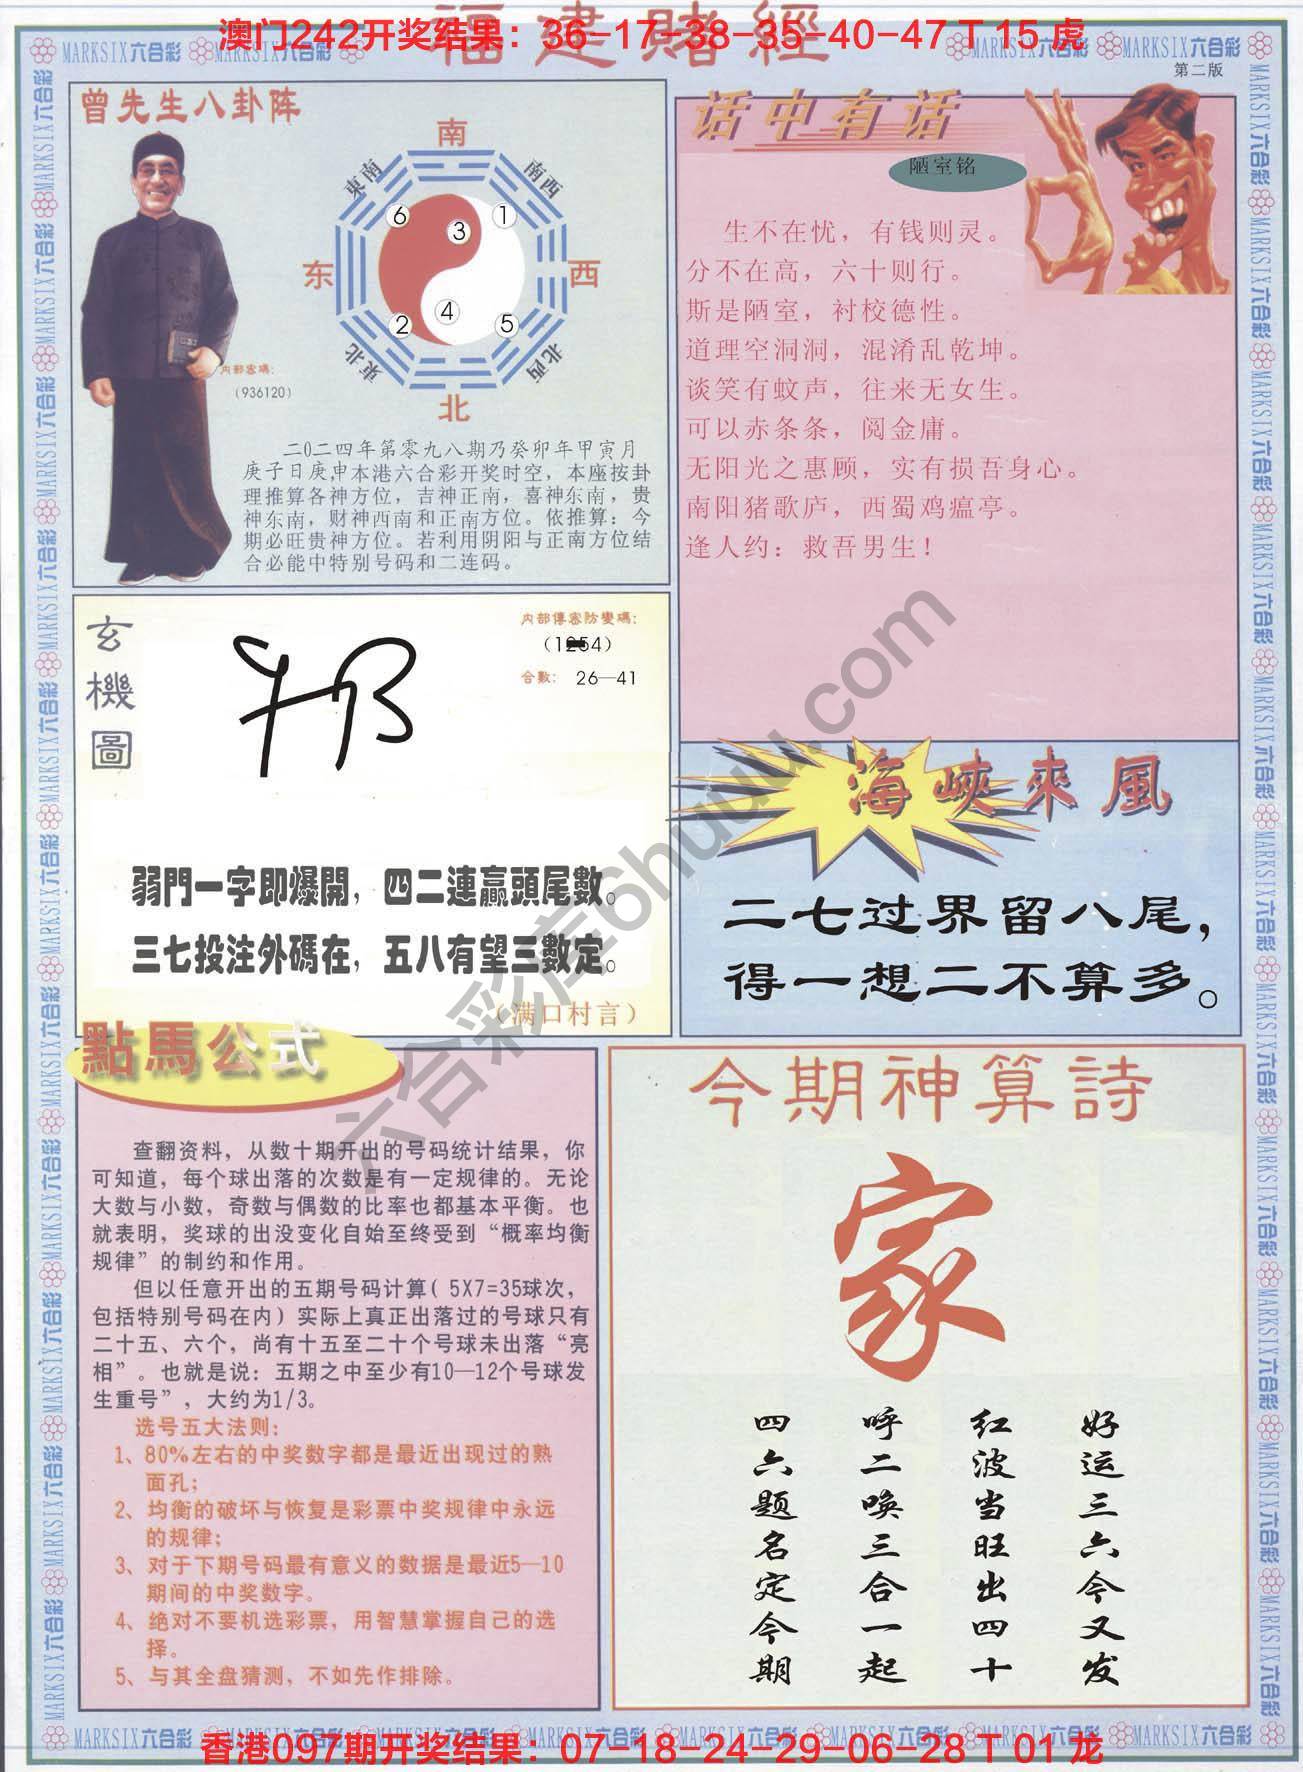 福建賭經
澳门242开奖结果：36-17-38-35-40-47 T 15 虎
MARKSIX六合彩
第二版
曾先生八卦阵
南
東南
南西
6
1
3
东
西
4
2
5
東北
北西
北
内部密碼：
（936120）
二0二四年第零九八期乃癸卯年甲寅月
庚子日庚申本港六合彩开奖时空，本座按卦
理推算各神方位，吉神正南，喜神东南，贵
神东南，财神西南和正南方位。依推算：今
期必旺贵神方位。若利用阴阳与正南方位结
合必能中特别号码和二连码。
话中有话
陋室铭
生不在忧，有钱则灵。
分不在高，六十则行。
斯是陋室，衬校德性。
道理空洞洞，混淆乱乾坤。
谈笑有蚊声，往来无女生。
可以赤条条，阅金庸。
无阳光之惠顾，实有损吾身心。
南阳猪歌庐，西蜀鸡瘟亭。
逢人约：救吾男生！
玄機圖
内部傳密防變碼：
合數： 26—41
弱門一字即爆開，四二連贏頭尾數。
三七投注外碼在，五八有望三數定。
（满口村言）
海峽來風
二七过界留八尾，
得一想二不算多。
點馬公式
查翻资料，从数十期开出的号码统计结果，你
可知道，每个球出落的次数是有一定规律的。无论
大数与小数，奇数与偶数的比率也都基本平衡。也
就表明，奖球的出没变化自始至终受到“概率均衡
规律”的制约和作用。
但以任意开出的五期号码计算（5X7=35球次，
包括特别号码在内）实际上真正出落过的号球只有
二十五、六个，尚有十五至二十个号球未出落“亮
相”。也就是说：五期之中至少有10—12个号球发
生重号”，大约为1/3。
选号五大法则：
1、80%左右的中奖数字都是最近出现过的熟
面孔；
2、均衡的破坏与恢复是彩票中奖规律中永远
的规律；
3、对于下期号码最有意义的数据是最近5—10
期间的中奖数字。
4、绝对不要机选彩票，用智慧掌握自己的选
择。
5、与其全盘猜测，不如先作排除。
今期神算詩
家
好运三六今又发
红波当旺出四十
呼二唤三合一起
四六题名定今期
六合彩库6huuu.com
香港097期开奖结果：07-18-24-29-06-28 T 01 龙